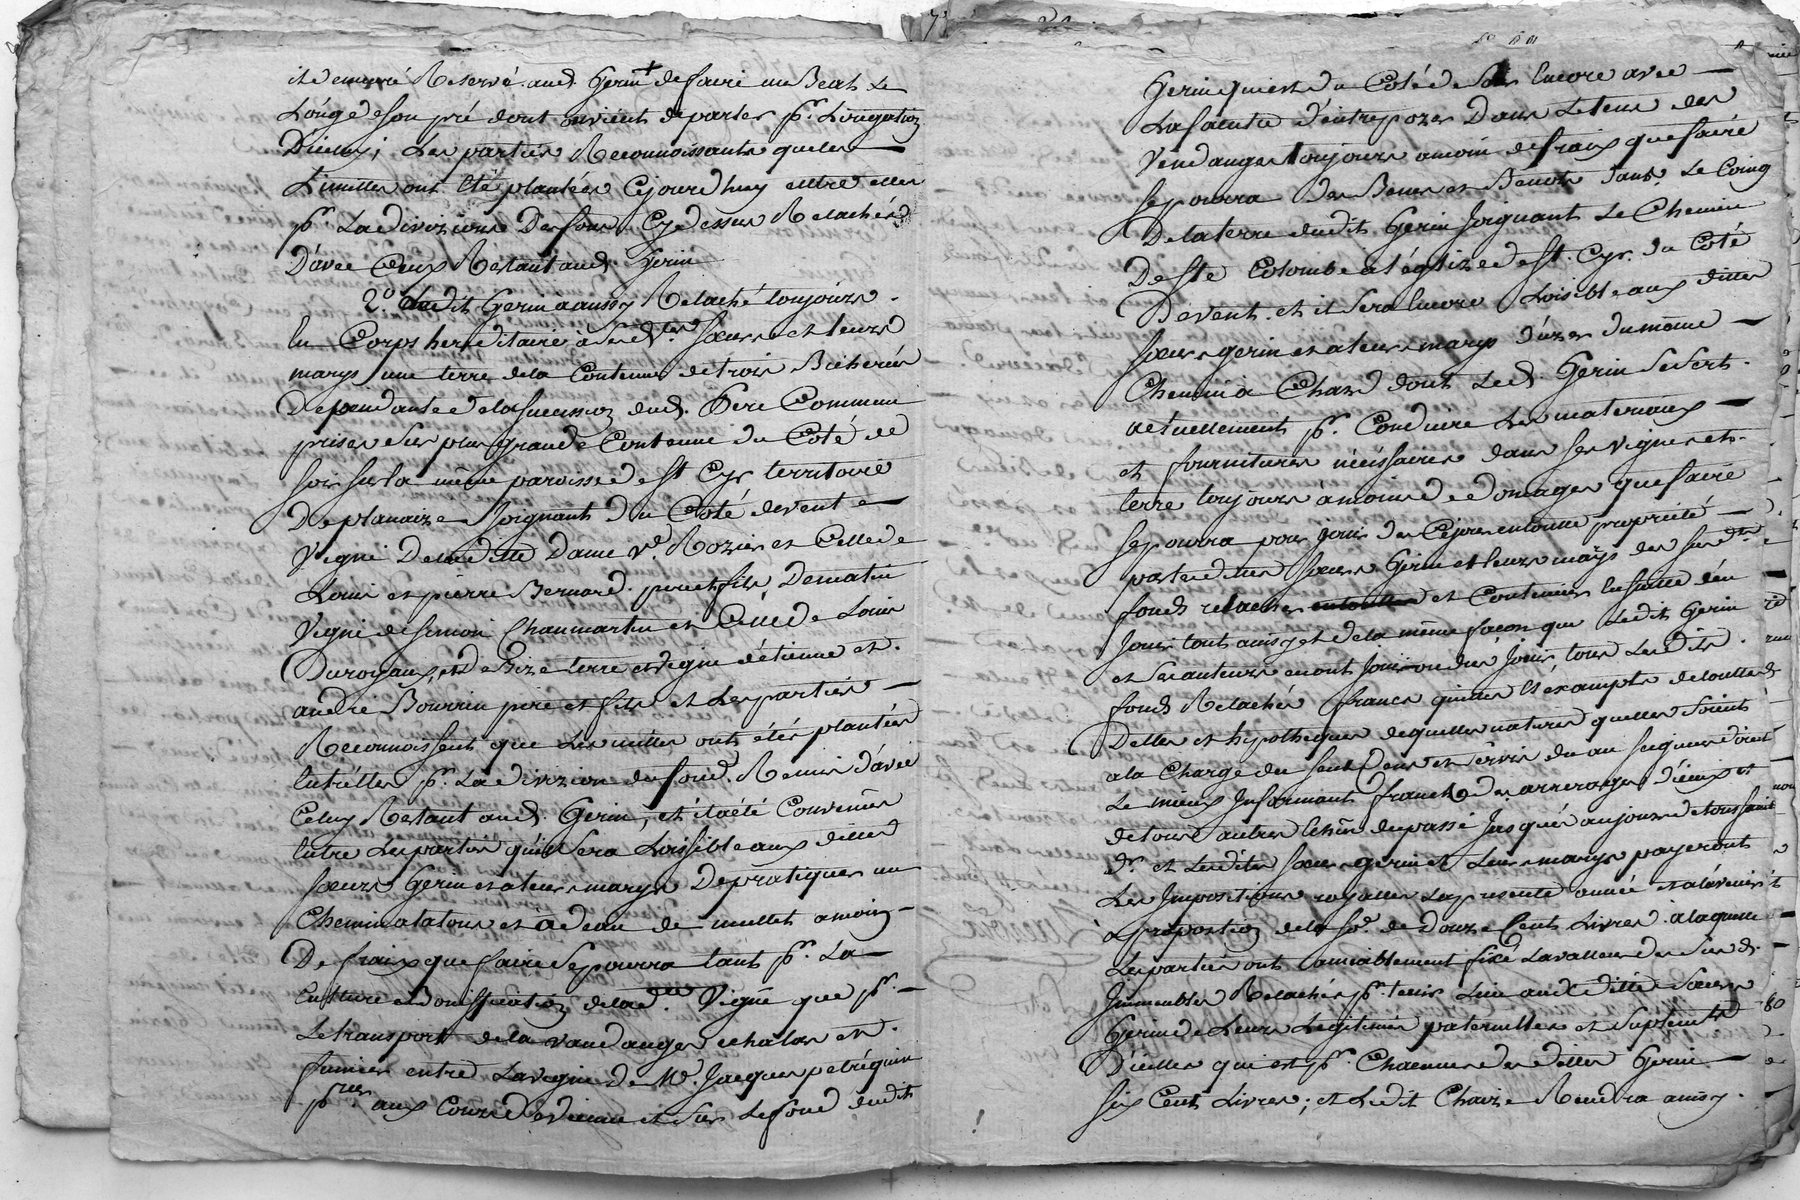 et demeuré Reservé aud. Gerin + de faire un Beat Le
Long de son pré dont on vient de parler pr. L'irrigation
D'icelluy; Les parties Reconnoissants que les
Limittes ont été plantées Cejourd'huy entre elles
pr. La divizion Des fonds Cy dessus Relachés
D'avec Ceux Restant aud. Gerin
2.° Ledit Gerin a aussy Relaché toujours
En Corps hereditaire à sesd.tes Sœurs et leurs
marys une terre de la Contenue de trois Bicherées
Dependante de la Succession dud. Pere Commun
prise sur plus grande Contenue du Coté de
soir sur la même paroisse de St Cyr territoire
De planaize Joignant du Coté de vent
Vigne De laditte Dame Ve. Rozier et Celle de
Louis et pierre Bernard pere et fils De matin
Vigne de Simon Chanmartin et Celle de Louis
Duroyau, et De Bize terre et vigne d'étienne et
andré Bourrin pere et fils et Les parties
Reconnoissent que Les limittes ont étés plantées
Entr'elles pr. La divizion du fond. Remis d'avec
Celuy Restant aud. Gerin, et il a été Convenu
Entre Les parties qu'il Sera Loisible aux dittes
Sœurs Gerin et a leurs marys De pratiquer un
Chemin a talons et a dean de mullet a moins
De fraix que faire Se pourra tant pr. La
Culture et Bonification de lad.te Vigne que pr.
Le transport de la vandange echalas et
fumier entre La vigne de Mr. Jacques petrequin
pr.reur aux Cours de vienne et Sur Le fond dudit
Gerin qui est du Coté de Soir Encore avec
La faculté d'entrepozer Dans Le tems des
Vendanges toujours a moins de fraix que faire
Se pourra des Bennes et Bennots dans Le Coing
De la terre dudit Gerin Joignant Le Chemin
De Ste Colombe a l'églize de St. Cyr. du Coté
De vent. et il Sera Encore Loisible aux dittes
Sœurs gerin et a leurs marys d'uzer du même
Chemin a Chard dont Led. Gerin Se Sert
actuellement pr. Conduire Les materiaux
et fournitures nécessaires dans Ses vignes et
terre toujours à moins de domages que faire
Se pourra pour jouir des Cejour en toutte proprieté
par lesdittes Sœurs Gerin et leurs marys des susd.ts
fonds relachés et Contenir En Suitte d'en
Jouir tout ainsy et de la même façon que Ledit Gerin
et Ses auteurs en ont Joui ou dû Jouir, tous Lesdits
fonds Relachés francs quittes et exempts de touttes
Dettes et hypotheques de quelles natures quelles Soient
a la Charge du Seul Cens et Servis du au Seigneur direct
Le mieux Informant franc des arrerages d'iceux et
de tous autres Echûs du passé Jusques aujourd'toussaint
dr. et Lesdites Sœurs gerin et Leurs marys payeront
Les Impositions royalles La presente année et a l'avenir
a proportion de la Sô.e de Douze Cent Livres a laquelle
Les parties ont amiablement fixé La valleur des Susd.
Immeubles Relachés pr. tenir Lieu auxdittes Sœurs
Gerin de Leurs Legitimes paternelles et Suplement
D'icelles qui est pr. Chacune des dittes Gerin
Six Cent Livres; et Ledit Chaize Rendra ainsy